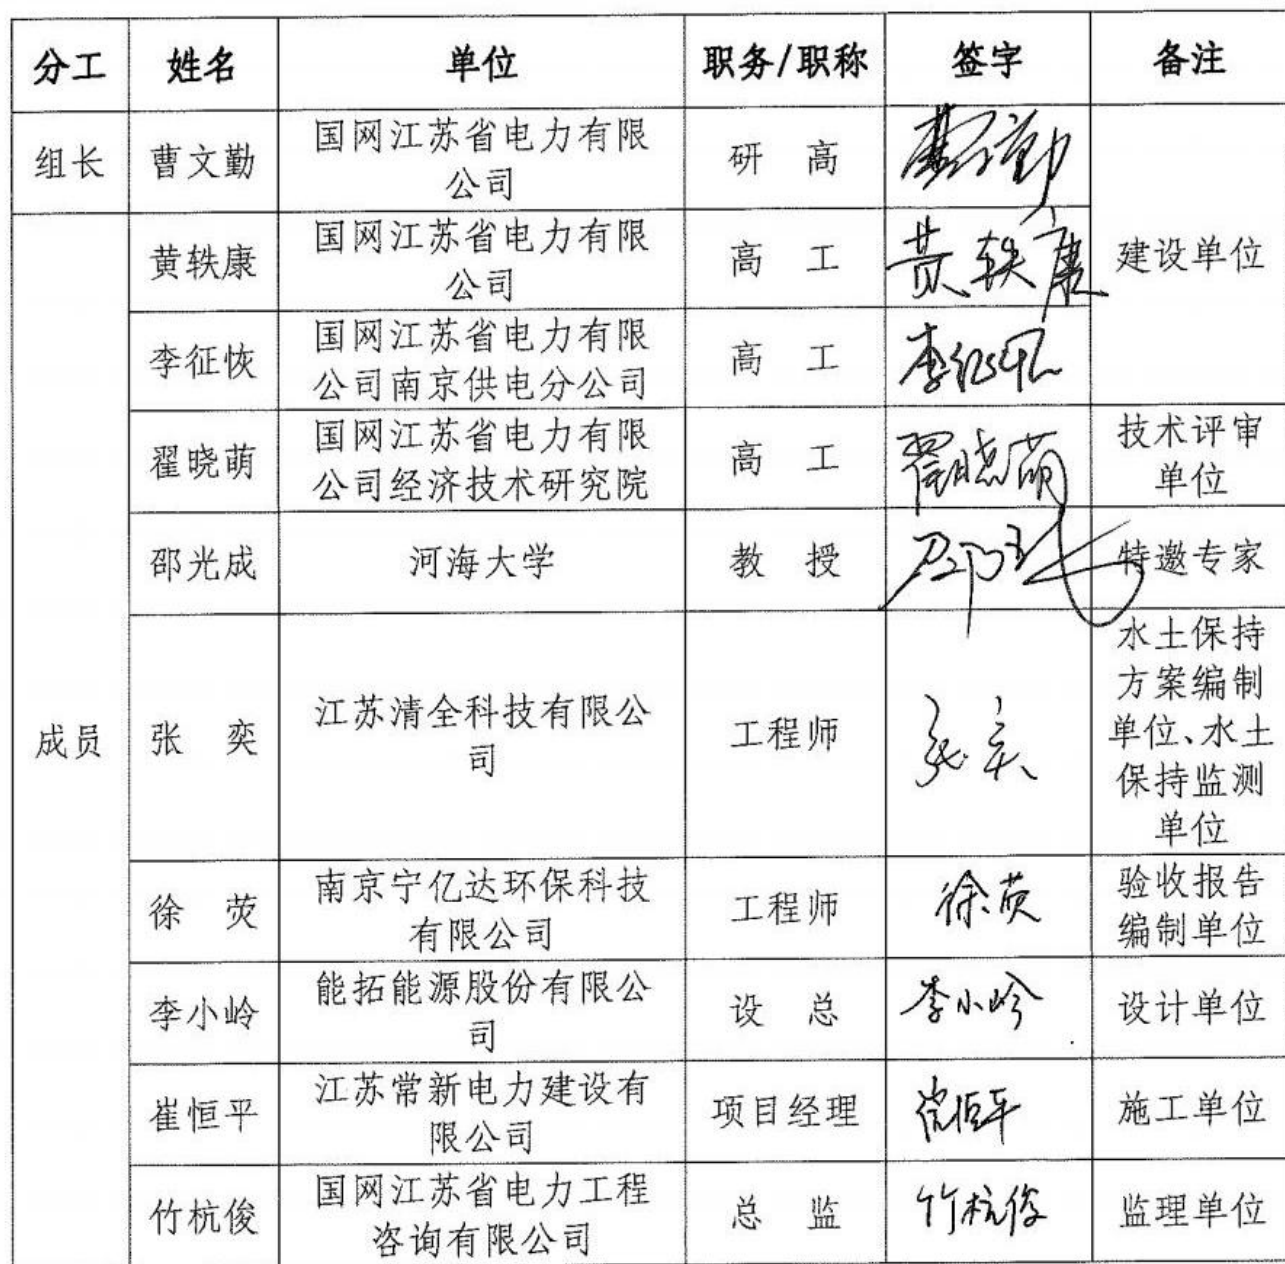 分工 姓名 单位 职务/职称 签字 备注
组长 曹文勤 国网江苏省电力有限
公司 研 高
黄轶康 国网江苏省电力有限
公司 高 工 黄轶康 建设单位
李征恢 国网江苏省电力有限
公司南京供电分公司 高 工
翟晓萌 国网江苏省电力有限
公司经济技术研究院 高 工 翟晓萌 技术评审
单位
邵光成 河海大学 教 授 特邀专家
成员 张 奕 江苏清全科技有限公
司 工程师 张奕 水土保持
方案编制
单位、水土
保持监测
单位
徐 荧 南京宁亿达环保科技
有限公司 工程师 徐荧 验收报告
编制单位
李小岭 能拓能源股份有限公
司 设 总 李小岭 设计单位
崔恒平 江苏常新电力建设有
限公司 项目经理 崔恒平 施工单位
竹杭俊 国网江苏省电力工程
咨询有限公司 总 监 竹杭俊 监理单位